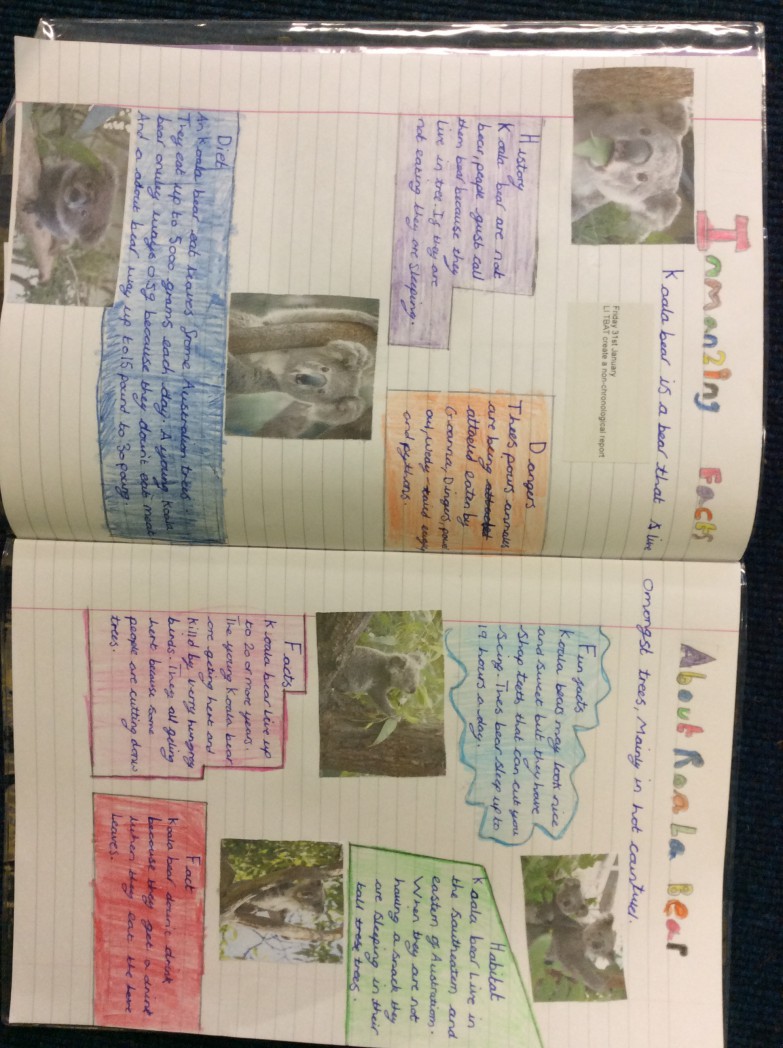 Inman2ing Facts
About Koala Bear
Koala bear is a bear that is live
amongst trees, Mainly in hot
Friday 31st January
LI TBAT create a non-chronological report
History
Koala bear are not
bear, people gust call
them bear because they
Live in tree. If they are
not eating they are sleeping.
Dangers
Thees pours animals
are being
attacted eaten by
Goanna, Dingers, powe
owl, wedy-tawd eagle
and pythons.
Diet
An Koala bear eat leaves Some Australian trees.
They eat up to 5000 grams each day. A young Koala
bear onley ways 0.5g because they don't eat meat
And a about bear way up to 15 pound to 30 poung.
Fun facts
Koala bears may look nice
and sweet but they have
shap teeth that can cut you
Seing. Thes bear sleep up to
19 hours a day.
Habitat
Koala bear Live in
the Southeaton and
eastern of Austration.
When they are not
having a snack they
are sleeping in their
tall trese trees.
Facts
Koala bear Live up
to 20 or more years.
The young Koala bear
are geting hert and
killd by verry hungrey
birds. They all geting
hert because some
people are cutting down
trees.
Fact
Koala bear don't drink
because they get a drink
when they eat the
leaves.